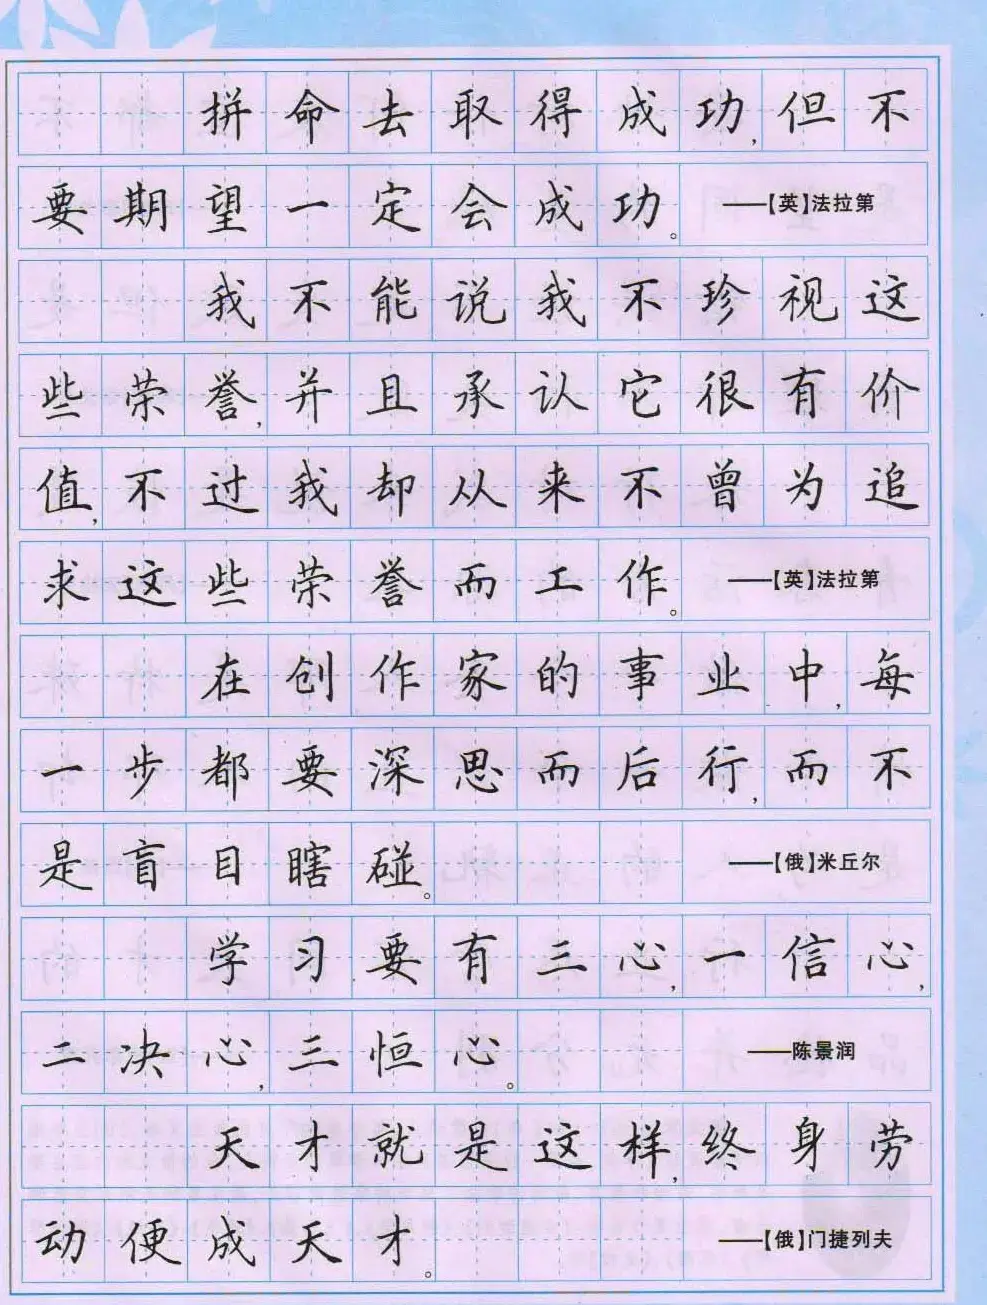 拼命去取得成功,但不
要期望一定会成功。 ——【英】法拉第
我不能说我不珍视这
些荣誉,并且承认它很有价
值,不过我却从来不曾为追
求这些荣誉而工作。 ——【英】法拉第
在创作家的事业中,每
一步都要深思而后行,而不
是盲目瞎碰。 ——【俄】米丘尔
学习要有三心,一信心,
二决心,三恒心。 ——陈景润
天才就是这样,终身劳
动便成天才。 ——【俄】门捷列夫